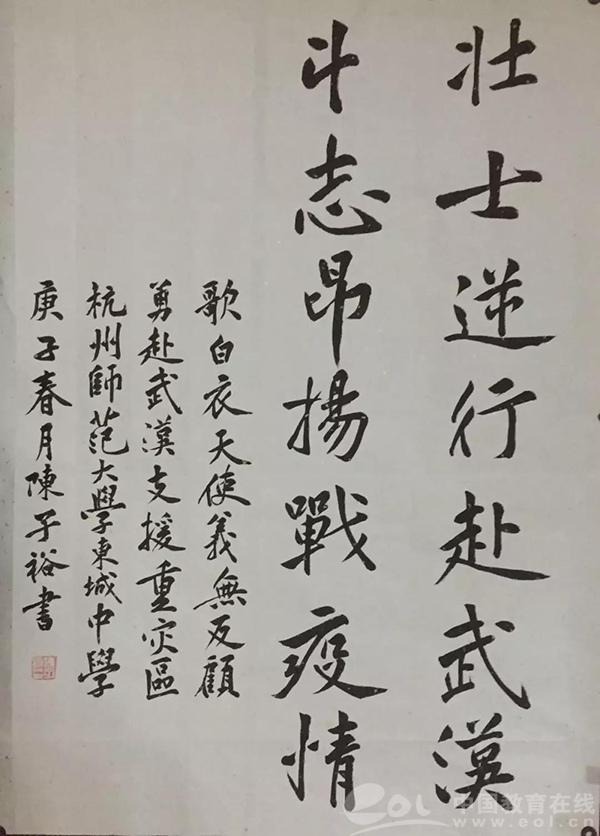 壮士逆行赴武漢
斗志昂揚戰疫情
歌白衣天使義無反顧
勇赴武漢支援重灾區
杭州師范大學東城中學
庚子春月陳子裕書
eol 中国教育在线
www.eol.cn